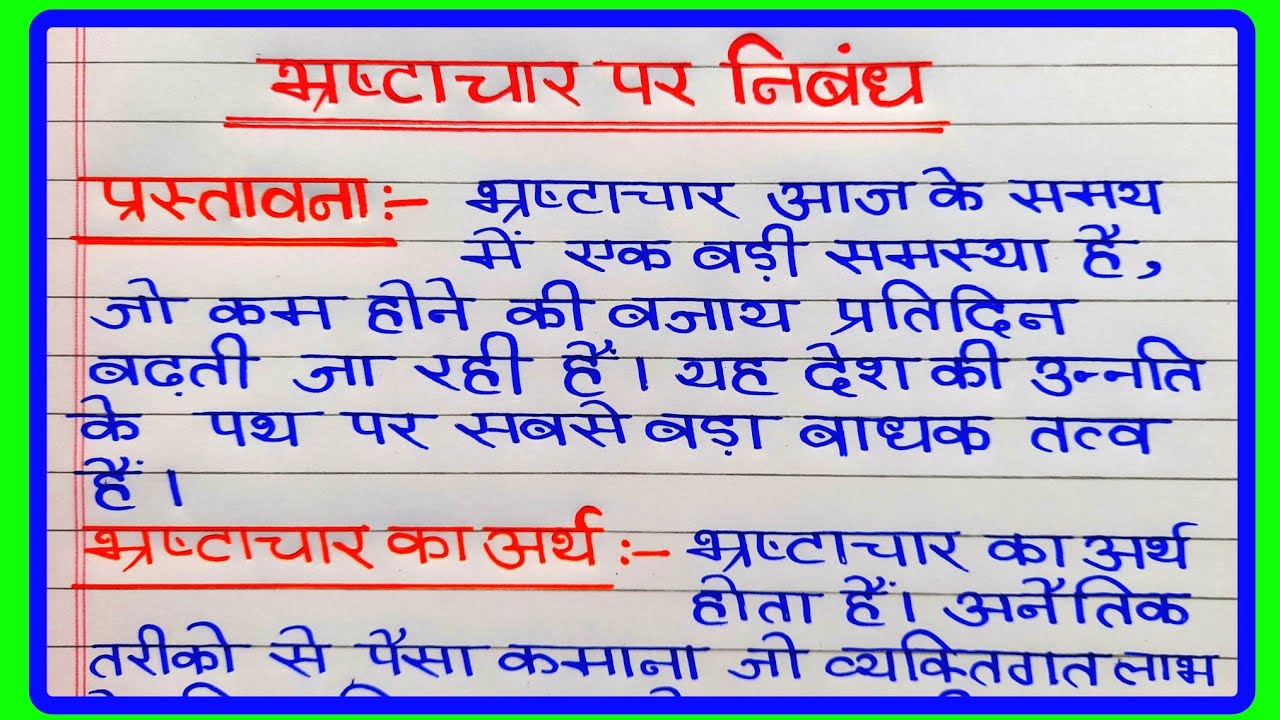 भ्रष्टाचार पर निबंध
प्रस्तावना:- भ्रष्टाचार आज के समय
में एक बड़ी समस्या है,
जो कम होने की बजाय प्रतिदिन
बढ़ती जा रही हैं। यह देश की उन्नति
के पथ पर सबसे बड़ा बाधक तत्व
हैं।
भ्रष्टाचार का अर्थ :- भ्रष्टाचार का अर्थ
होता हैं। अनैतिक
तरीको से पैसा कमाना जो व्यक्तिगत लाभ